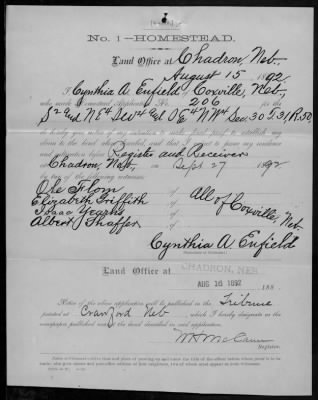 No. 1—HOMESTEAD.
Land Office at Chadron, Neb.
August 15 1892.
I, Cynthia A. Enfield, Coxville, Neb.
who made Homestead Application No. 206 for the
do hereby give notice of my intention to make final proof to establish my
claim to the land above described, and that I expect to prove my residence
and cultivation before Register and Receiver
Chadron, Neb. on Sept 27 1892
by two of the following witnesses:
Ole Flom
Elizabeth Griffith
Isaac Yearns
Albert Shaffer
of All of Coxville, Neb.
Cynthia A. Enfield
Land Office at CHADRON, NEB
AUG 16 1892 188
Notice of the above application will be published in the Tribune
printed at Crawford Neb, which I hereby designate as the
newspaper published nearest the land described in said application.
Register.